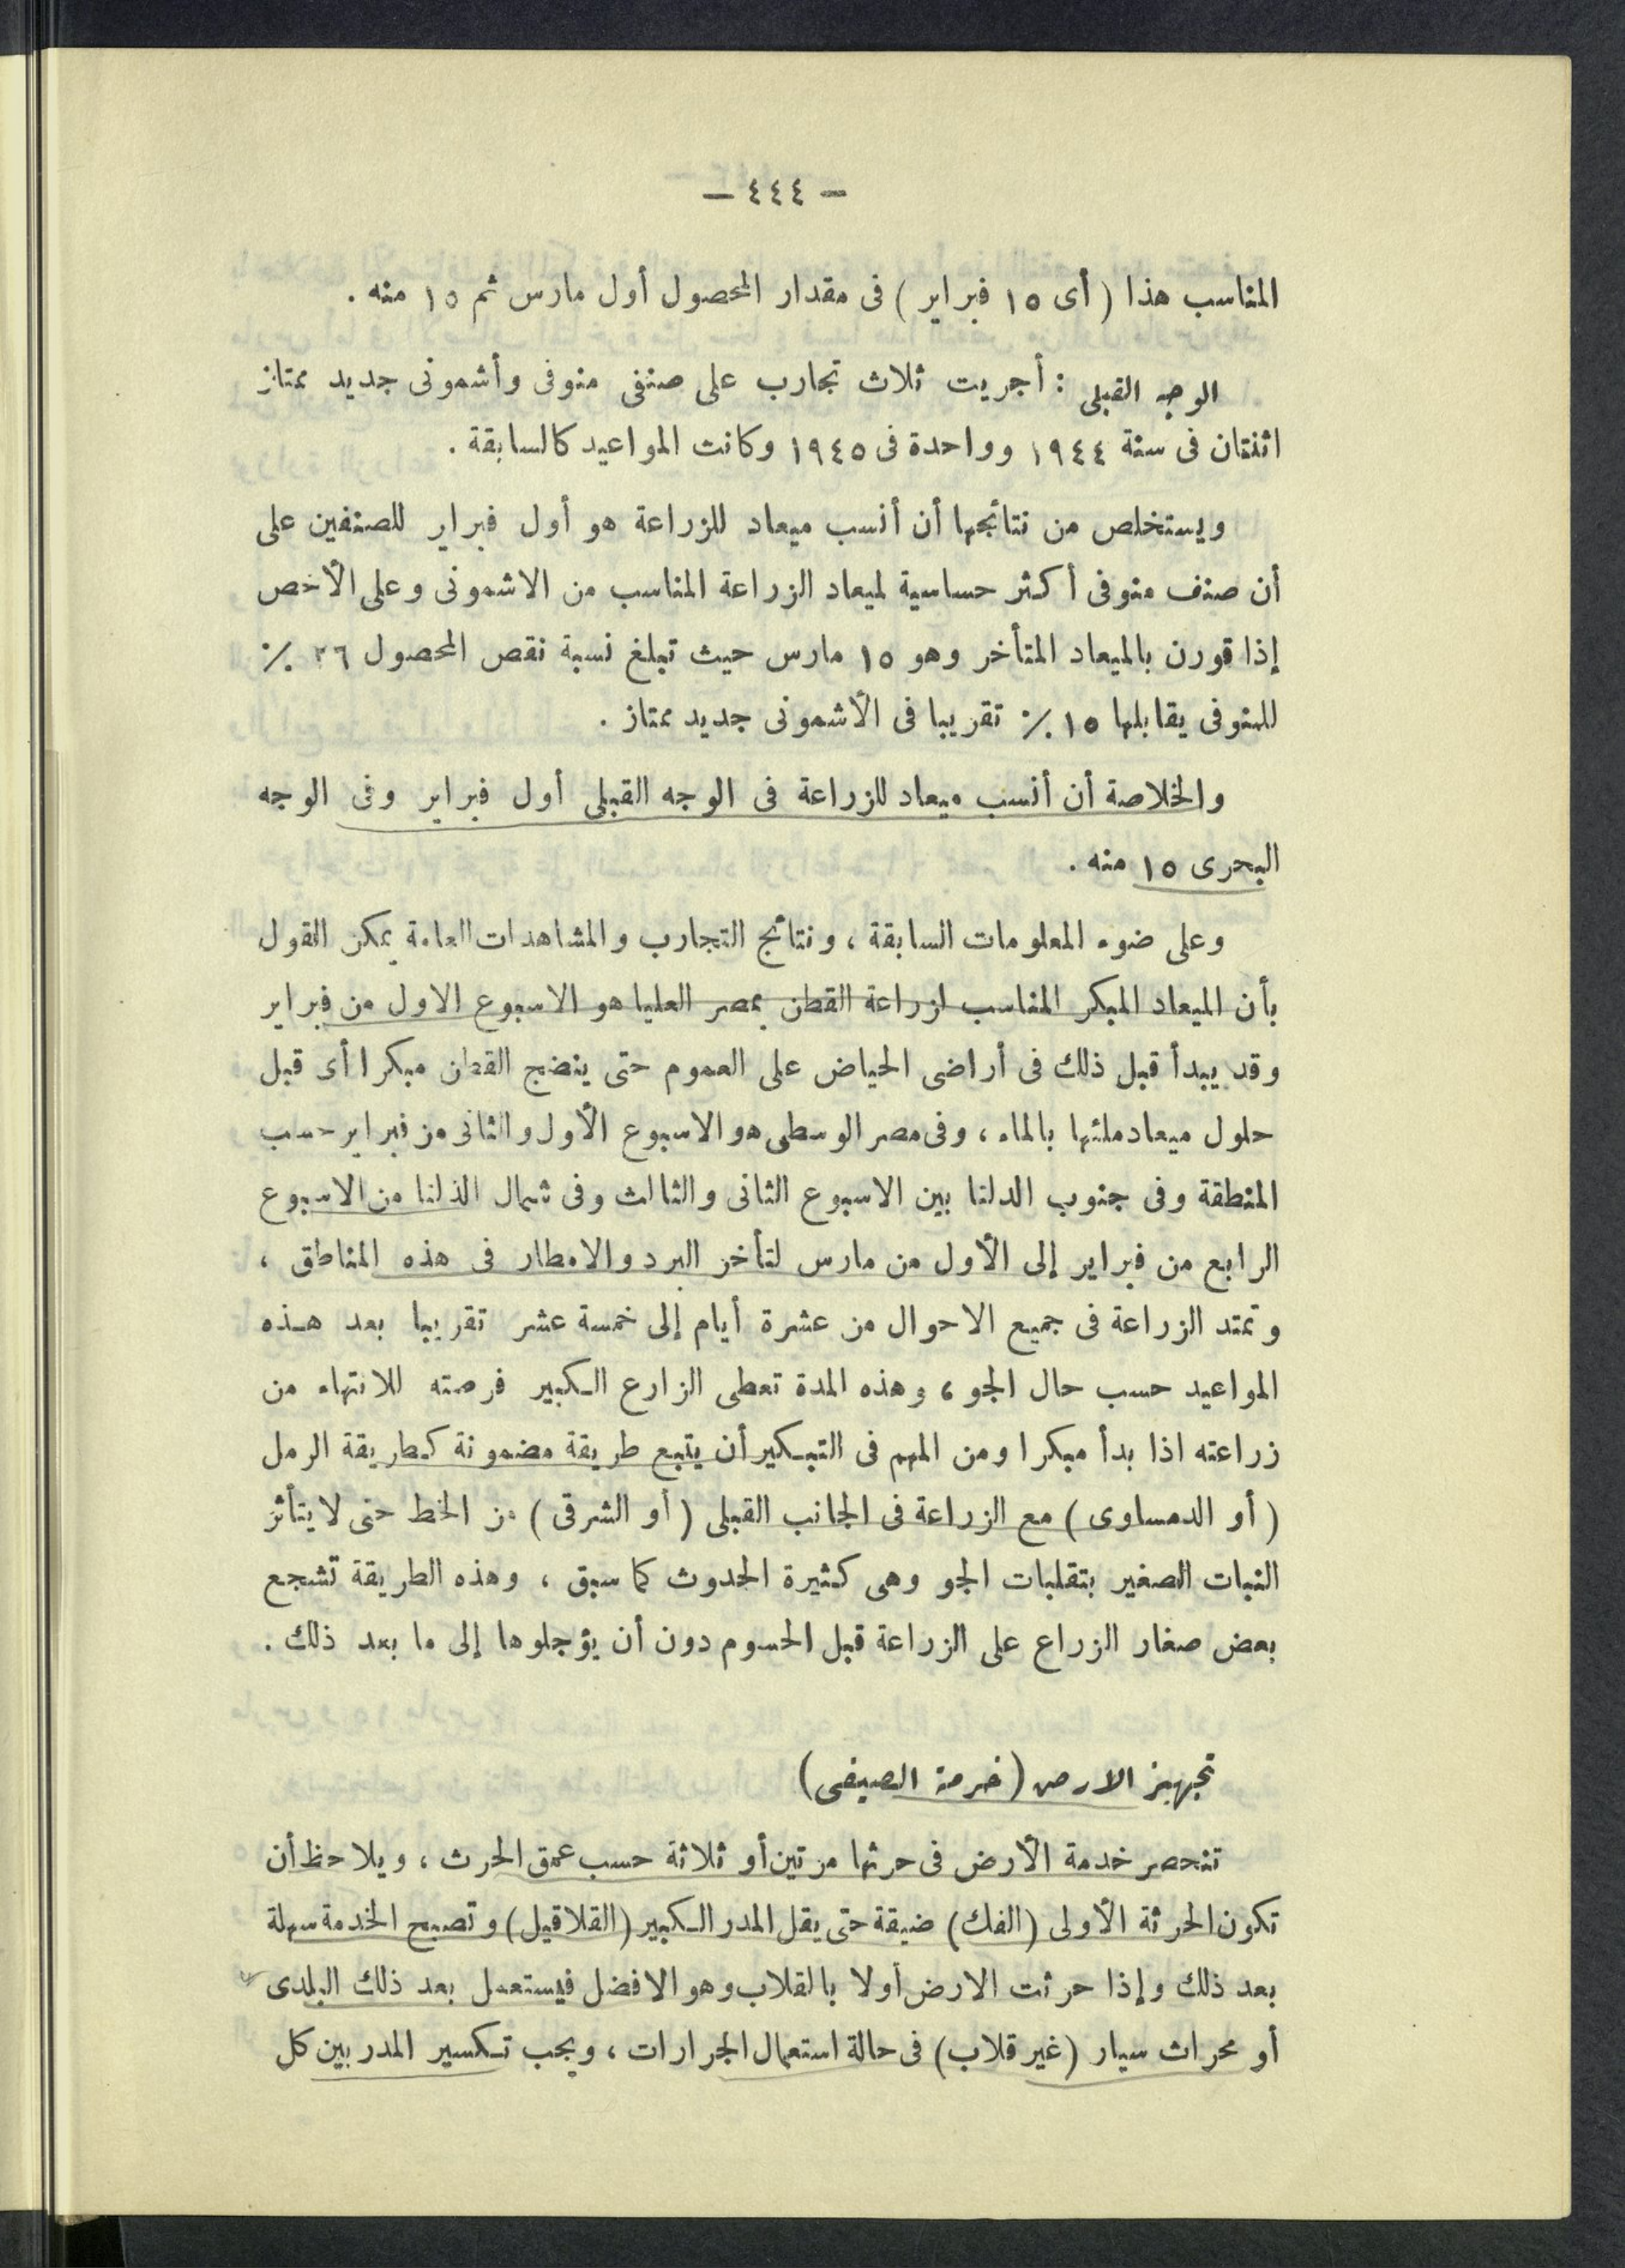 — ٤٤٤ —
المناسب هذا ( أى ١٥ فبراير ) فى مقدار المحصول أول مارس ثم ١٥ منه .
الوجه القبلى : أجريت ثلاث تجارب على صنفى منوفى وأشمونى جديد ممتاز
اثنتان فى سنة ١٩٤٤ وواحدة فى ١٩٤٥ وكانت المواعيد كالسابقة .
ويستخلص من نتائجها أن أنسب ميعاد للزراعة هو أول فبراير للصنفين على
أن صنف منوفى أكثر حساسية لميعاد الزراعة المناسب من الاشمونى وعلى الأخص
إذا قورن بالميعاد المتأخر وهو ١٥ مارس حيث تبلغ نسبة نقص المحصول ٢٦ ٪
للمنوفى يقابلها ١٥ ٪ تقريبا فى الأشمونى جديد ممتاز .
والخلاصة أن أنسب ميعاد للزراعة فى الوجه القبلى أول فبراير وفى الوجه
البحرى ١٥ منه .
وعلى ضوء المعلومات السابقة ، ونتائج التجارب والمشاهدات العامة يمكن القول
بأن الميعاد المبكر المناسب لزراعة القطن بمصر العليا هو الاسبوع الاول من فبراير
وقد يبدأ قبل ذلك فى أراضى الحياض على العموم حتى ينضج القطن مبكرا أى قبل
حلول ميعاد ملئها بالماء ، وفى مصر الوسطى هو الاسبوع الأول والثانى من فبراير حسب
المنطقة وفى جنوب الدلتا بين الاسبوع الثانى والثالث وفى شمال الدلتا من الاسبوع
الرابع من فبراير إلى الأول من مارس لتأخر البرد والامطار فى هذه المناطق ،
وتمتد الزراعة فى جميع الاحوال من عشرة أيام إلى خمسة عشر تقريبا بعد هذه
المواعيد حسب حال الجو ، وهذه المدة تعطى الزارع الكبير فرصته للانتهاء من
زراعته اذا بدأ مبكرا ومن المهم فى التبكير أن يتبع طريقة مضمونة كطريقة الرمل
( أو الدمساوى ) مع الزراعة فى الجانب القبلى ( أو الشرقى ) من الخط حتى لا يتأثر
النبات الصغير بتقلبات الجو وهى كثيرة الحدوث كما سبق ، وهذه الطريقة تشجع
بعض صغار الزراع على الزراعة قبل الحسوم دون أن يؤجلوها إلى ما بعد ذلك .
تجهيز الارض ( خدمة الصيفى )
تنحصر خدمة الأرض فى حرثها مرتين أو ثلاثة حسب عمق الحرث ، ويلاحظ أن
تكون الحرثة الأولى ( الفك ) ضيقة حتى يقل المدر الكبير ( القلاقيل ) وتصبح الخدمة سهلة
بعد ذلك وإذا حرثت الارض أولا بالقلاب وهو الافضل فيستعمل بعد ذلك البلدى
أو محراث سيار ( غير قلاب ) فى حالة استعمال الجرارات ، ويجب تكسير المدر بين كل